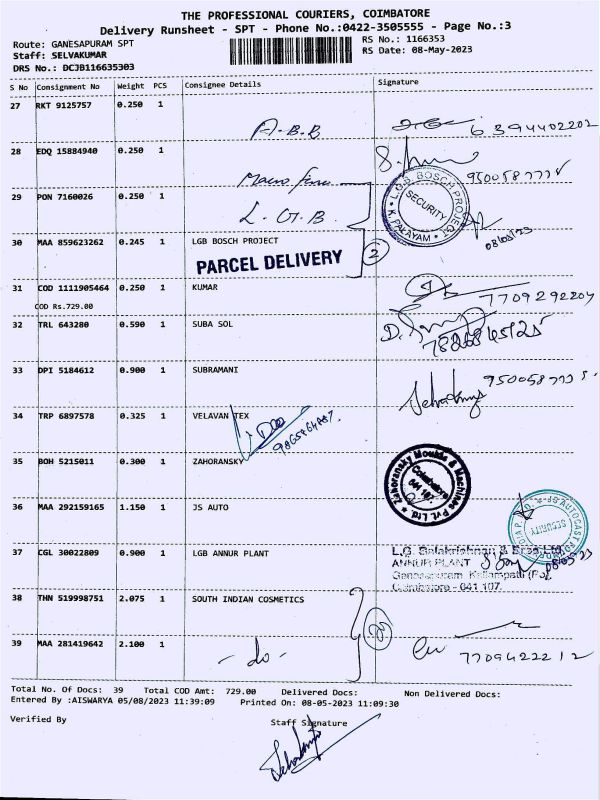 THE PROFESSIONAL COURIERS, COIMBATORE
Delivery Runsheet - SPT - Phone No.:0422-3505555 - Page No.:3
Route: GANESAPURAM SPT
RS No.: 1166353
Staff: SELVAKUMAR
RS Date: 08-May-2023
DRS No.: DCJB116635303
S No Consignment No Weight PCS Consignee Details Signature
27 RKT 9125757 0.250 1
A.B.B
6394402202
28 EDQ 15884940 0.250 1
9500587775
29 PON 7160026 0.250 1
L.G.B.
L.G.B. BOSCH PROJECT
SECURITY
K. PALAYAM
08/05/23
30 MAA 859623262 0.245 1 LGB BOSCH PROJECT
PARCEL DELIVERY
2
31 COD 1111905464 0.250 1 KUMAR
7709292204
COD Rs.729.00
32 TRL 643280 0.590 1 SUBA SOL
33 DPI 5184612 0.900 1 SUBRAMANI
34 TRP 6897578 0.325 1 VELAVAN TEX
35 BOH 5215011 0.300 1 ZAHORANSKY
Zahoransky Moulds & Machines Pvt. Ltd
Coimbatore
641 107.
36 MAA 292159165 1.150 1 JS AUTO
JS AUTOCAST FOUNDRY INDIA P. LTD.
SECURITY
37 CGL 30022809 0.900 1 LGB ANNUR PLANT
L.G. Balakrishnan & Bros Ltd.
ANNUR PLANT
Ganesapuram, Kattampatti (Po),
Coimbatore - 641 107.
08/05/23
38 THN 519998751 2.075 1 SOUTH INDIAN COSMETICS
39 MAA 281419642 2.100 1
- do -
7709422212
Total No. Of Docs: 39 Total COD Amt: 729.00 Delivered Docs: Non Delivered Docs:
Entered By :AISWARYA 05/08/2023 11:39:09 Printed On: 08-05-2023 11:09:30
Verified By
Staff Signature